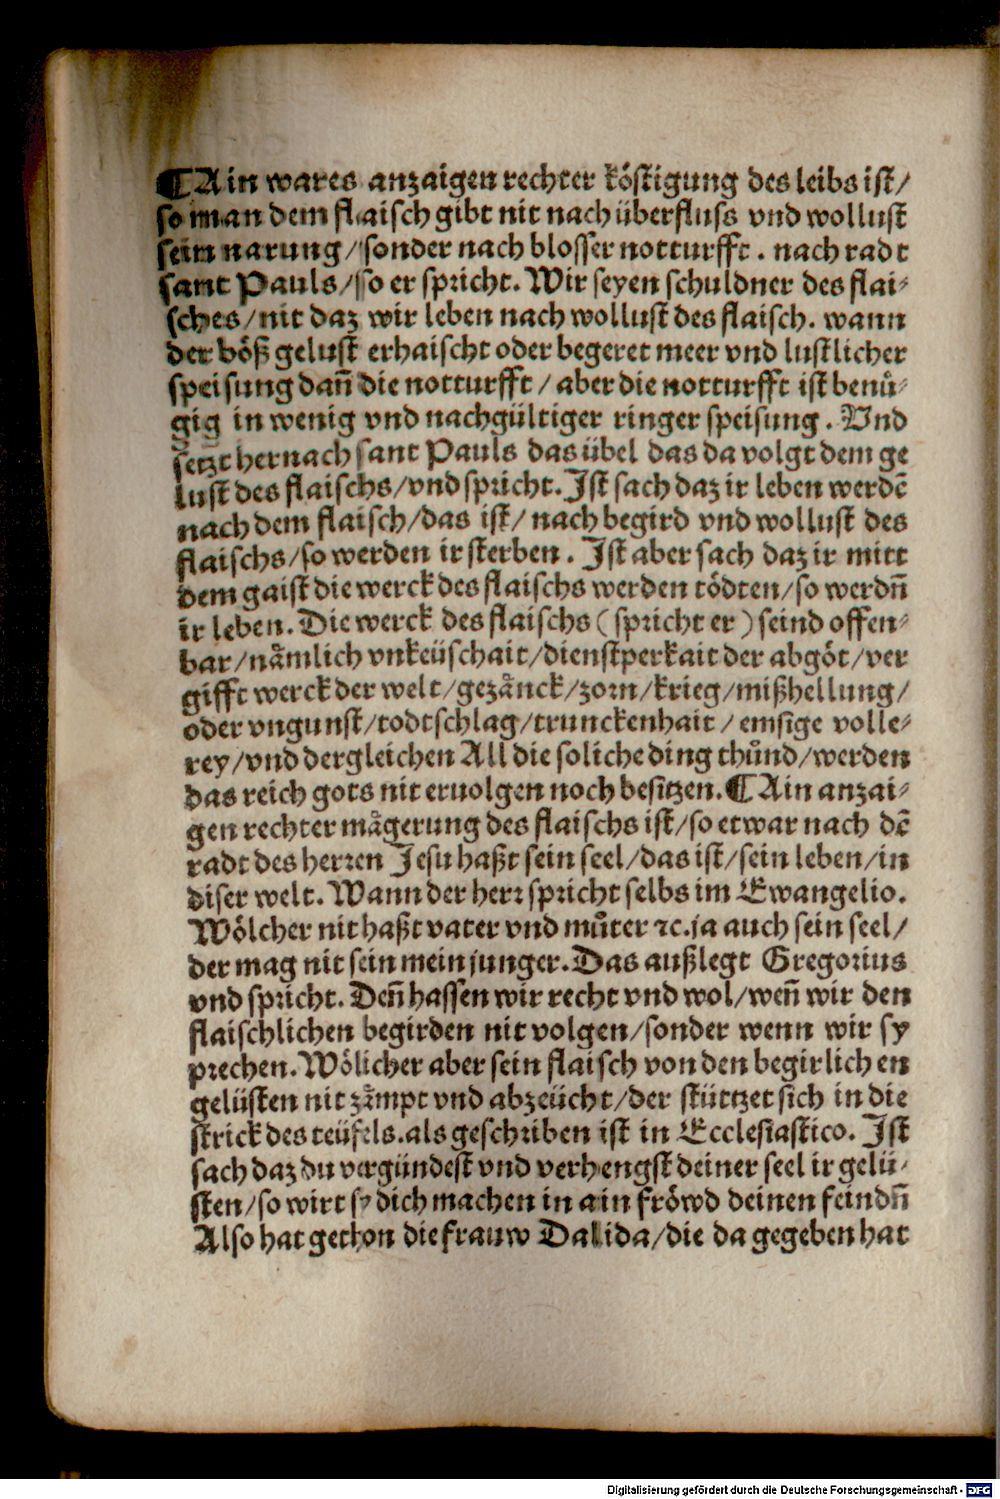 ¶Ain wares anzaigen rechter köstigung des leibs ist/
so man dem flaisch gibt nit nach überfluss vnd wollust
sein narung/ sonder nach blosser notturfft. nach radt
sant Pauls/ so er spricht. Wir seyen schuldner des flai⸗
sches/nit daz wir leben nach wollust des flaisch. wann
der böß gelust erhaischt oder begeret meer vnd lustlicher
speisung dañ die notturfft/ aber die notturfft ist benuͤ⸗
gig in wenig vnd nachgültiger ringer speisung. Vnd
setzt hernach sant Pauls das übel das da volgt dem ge
lust des flaischs/vnd spricht. Ist sach daz ir leben werdē
nach dem flaisch/das ist/ nach begird vnd wollust des
flaischs/so werden ir sterben. Ist aber sach daz ir mitt
dem gaist die werck des flaischs werden tödten/so werdn̄
ir leben. Die werck des flaischs (spricht er) seind offen⸗
bar/naͤmlich vnkeüschait/dienstperkait der abgöt/ver
gifft werck der welt/gezaͤnck/zorn/krieg/mißhellung/
oder vngunst/todtschlag/trunckenhait/ emsige volle⸗
rey/vnd dergleichen All die soliche ding thuͦnd/werden
das reich gots nit eruolgen noch besitzen. ¶Ain anzai⸗
gen rechter maͤgerung des flaischs ist/so etwar nach dē
radt des herren Jesu haßt sein seel/das ist/sein leben/in
diser welt. Wann der herr spricht selbs im Ewangelio.
Wölcher nit haßt vater vnd muͦter ⁊c. ja auch sein seel/
der mag nit sein mein junger. Das außlegt Gregorius
vnd spricht. Deñ hassen wir recht vnd wol/weñ wir den
flaischlichen begirden nit volgen/sonder wenn wir sy
prechen. Wölicher aber sein flaisch von den begirlichen
gelüsten nit zaͤmpt vnd abzeücht/der stürtzet sich in die
strick des teüfels. als geschriben ist in Ecclesiastico. Ist
sach daz du vergündest vnd verhengst deiner seel ir gelü⸗
sten/so wirt sy dich machen in ain fröwd deinen feindn̄
Also hat gethon die frauw Dalida/die da gegeben hat
Digitalisierung gefördert durch die Deutsche Forschungsgemeinschaft - DFG